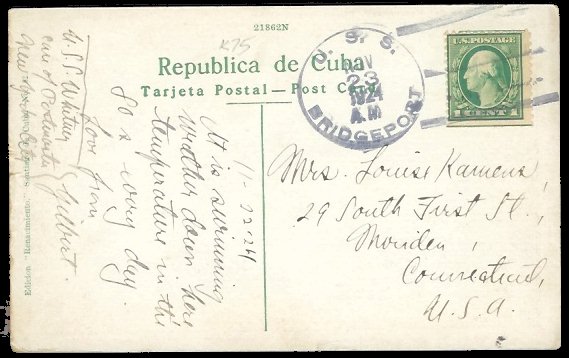 21862N
K75
Republica de Cuba
Tarjeta Postal—Post Card
U.S.S.
NOV
23
1924
A.M
BRIDGEPORT
U.S. POSTAGE
1 CENT 1
Mrs. Louise Kamens,
29 South First St.,
Meriden,
Connecticut,
U.S.A.
11-22-24
It is swimming
weather down here
temperature in the
80's every day.
Love from
Gilbert.
U.S.S. Whitney
care of Postmaster
New York City
Edicion "Renacimiento."